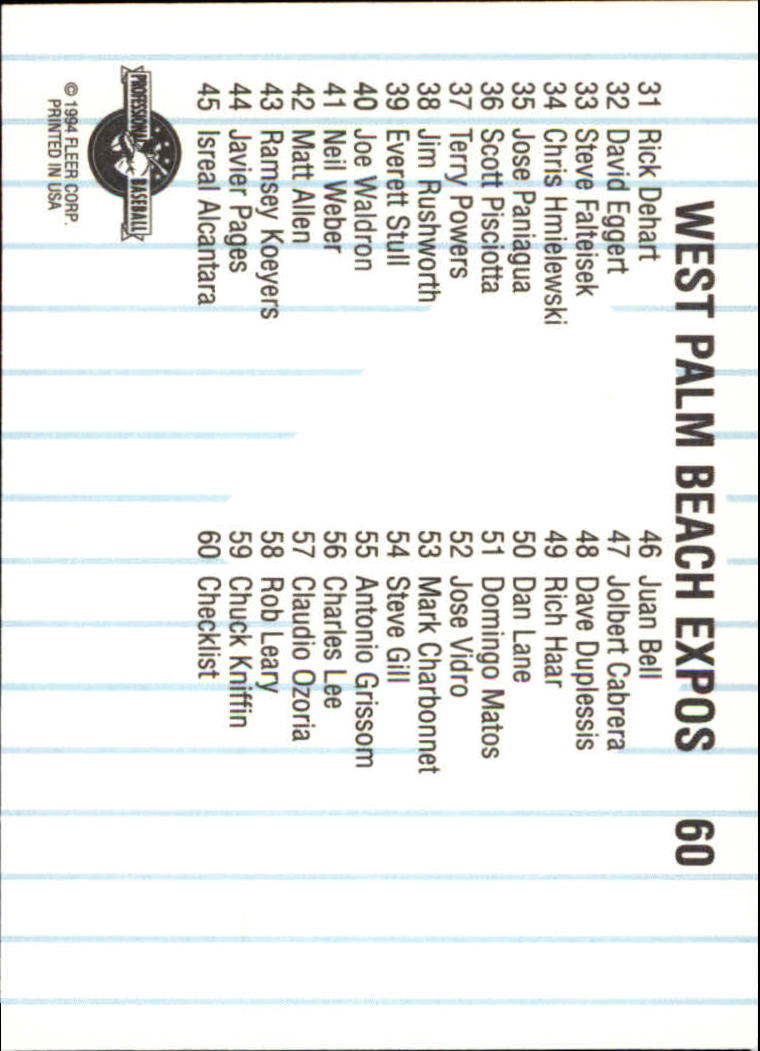 WEST PALM BEACH EXPOS 60
31 Rick Dehart
32 David Eggert
33 Steve Falteisek
34 Chris Hmielewski
35 Jose Paniagua
36 Scott Pisciotta
37 Terry Powers
38 Jim Rushworth
39 Everett Stull
40 Joe Waldron
41 Neil Weber
42 Matt Allen
43 Ramsey Koeyers
44 Javier Pages
45 Isreal Alcantara
46 Juan Bell
47 Jolbert Cabrera
48 Dave Duplessis
49 Rich Haar
50 Dan Lane
51 Domingo Matos
52 Jose Vidro
53 Mark Charbonnet
54 Steve Gill
55 Antonio Grissom
56 Charles Lee
57 Claudio Ozoria
58 Rob Leary
59 Chuck Kniffin
60 Checklist
PROFESSIONAL BASEBALL
© 1994 FLEER CORP.
PRINTED IN USA